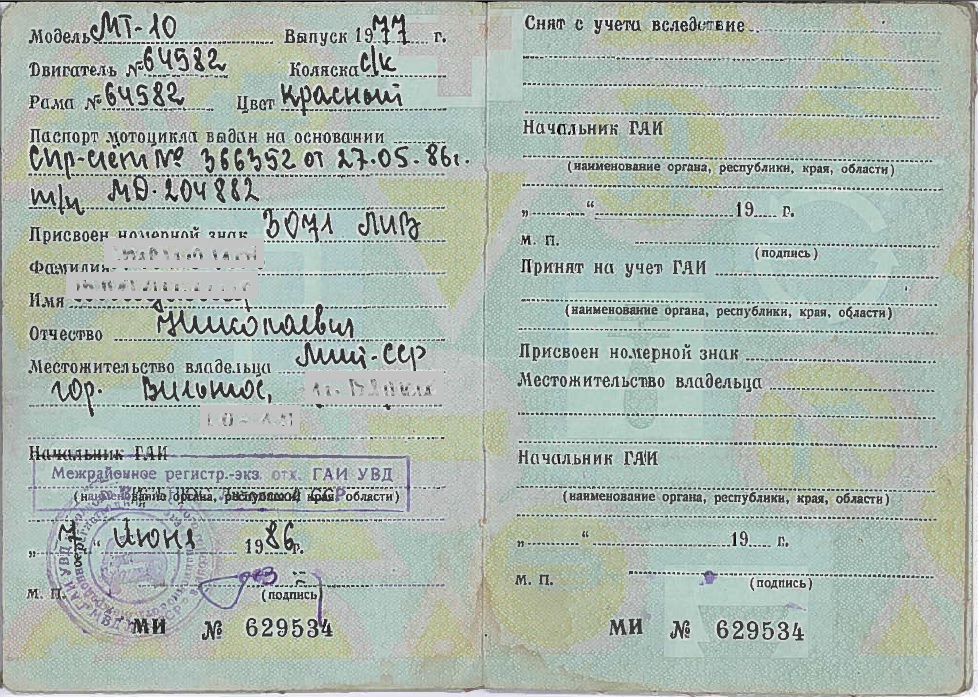 Модель МТ-10 Выпуск 1977 г.
Двигатель № 64582 Коляска с/к
Рама № 64582 Цвет Красный
Паспорт мотоцикла выдан на основании
Спр-счёт № 366352 от 27.05.86г.
т/ц МД-204882
Присвоен номерной знак 3071 ЛИВ
Фамилия
Имя
Отчество Николаевич
Местожительство владельца Лит-ССР
гор. Вильнюс,
Начальник ГАИ
Межрайонное регистр.-экз. отд. ГАИ УВД
(наименование органа, республики, края, области)
„7“ Июня 1986г.
М. П. (подпись)
МИ № 629534
Снят с учета вследствие
Начальник ГАИ
(наименование органа, республики, края, области)
„ “ 19 г.
М. П.
(подпись)
Принят на учет ГАИ
(наименование органа, республики, края, области)
Присвоен номерной знак
Местожительство владельца
Начальник ГАИ
(наименование органа, республики, края, области)
„ “ 19 г.
М. П. (подпись)
МИ № 629534